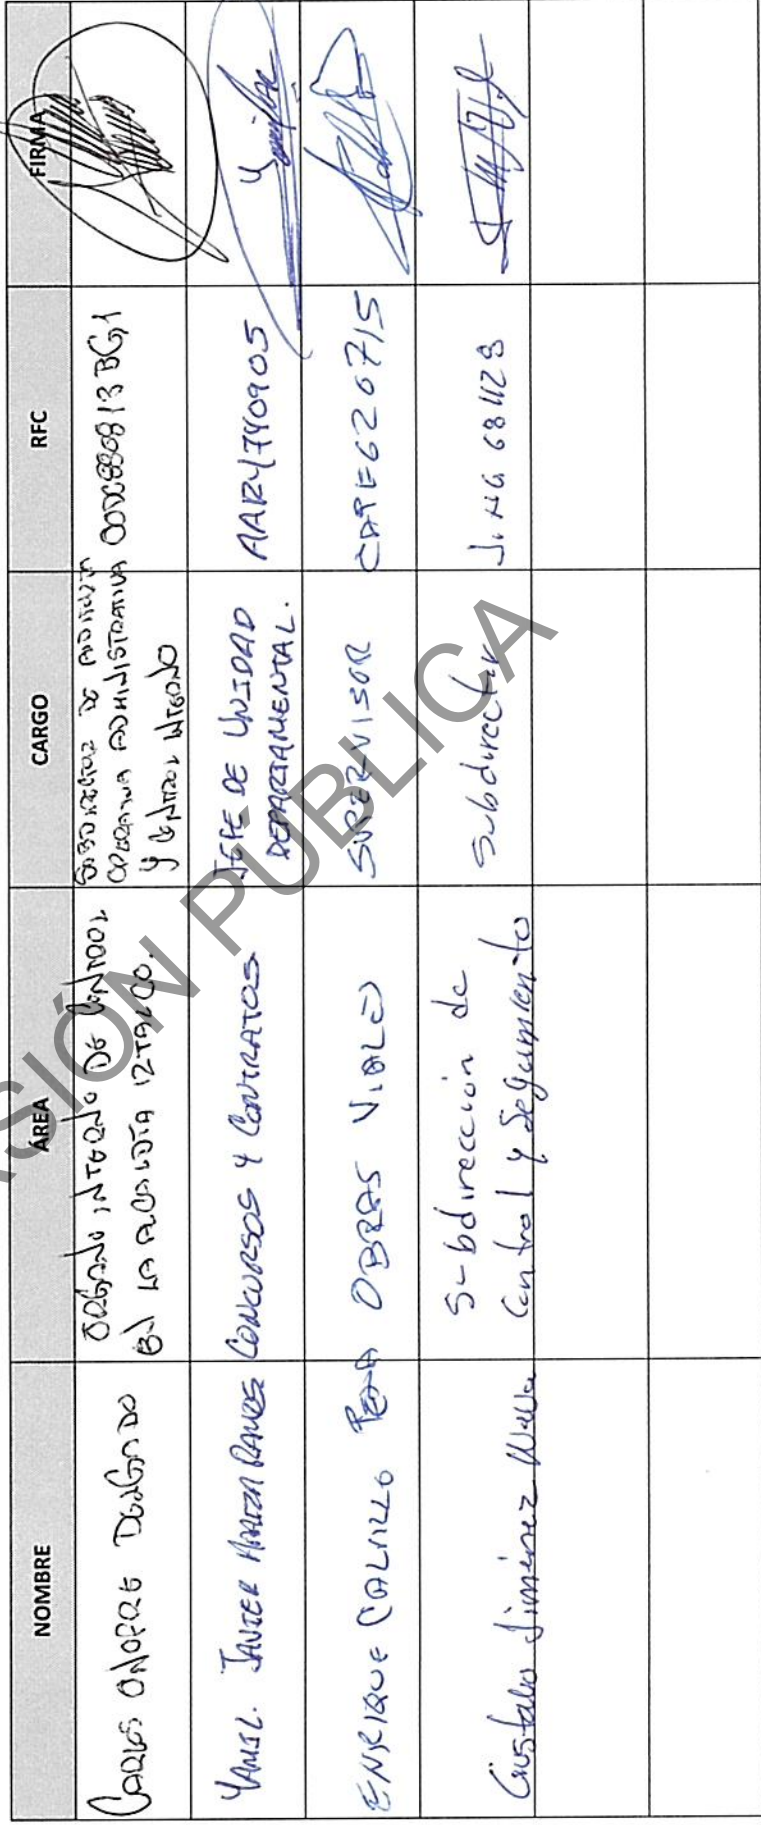 NOMBRE ÁREA CARGO RFC FIRMA
CARLOS ONOFRE DELGADO
ORGANO INTERNO DE CONTROL
EN LA ALCALDÍA IZTALCO.
SUBDIRECTOR DE AUDITORIA
OPERATIVA ADMINISTRATIVA
Y CONTROL INTERNO
OODC880813BG1
YAMIL. JAVIER RAMOS
CONCURSOS Y CONTRATOS
JEFE DE UNIDAD
DEPARTAMENTAL.
AARY740905
ENRIQUE PEÑA
OBRAS VIALES
SUPERVISOR
CAPE620715
Gustavo Jiménez
Subdirección de
Control y Seguimiento
Subdirector
VERSIÓN PÚBLICA